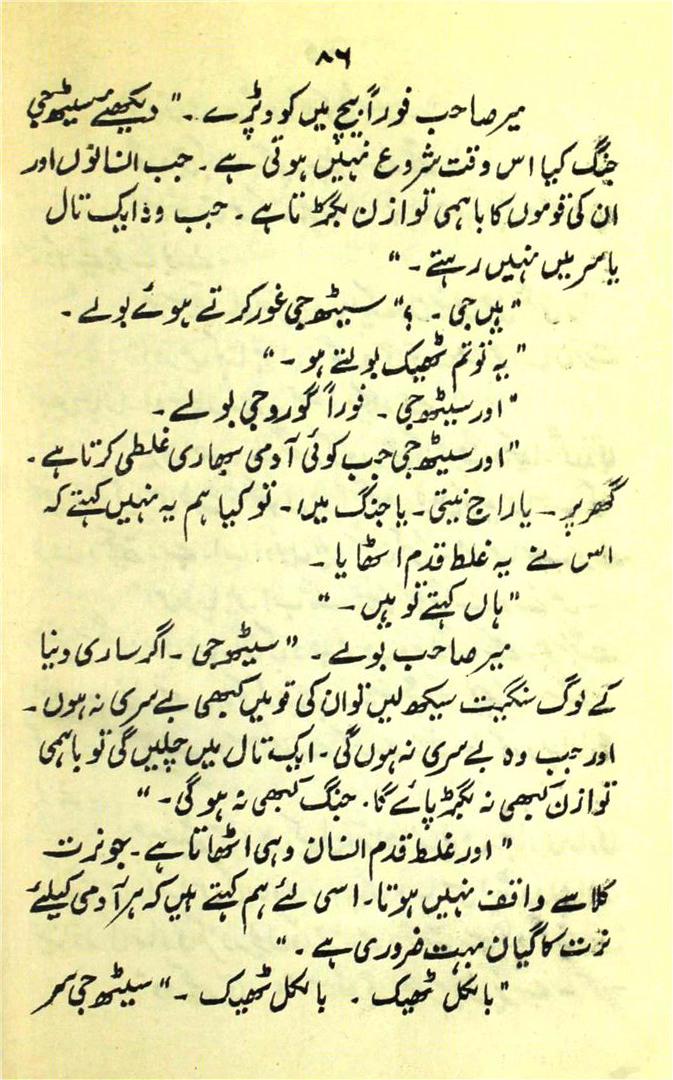 ۸۶
میر صاحب فوراً بیچ میں کود پڑے ۔ " دیکھئے سیٹھ جی
جنگ کیا اس وقت شروع نہیں ہوتی ہے ۔ جب انسانوں اور
ان کی قوموں کا باہمی توازن بگڑتا ہے ۔ جب وہ ایک تال
یا سر میں نہیں رہتے ۔ "
" ہیں جی ۔ ؟ " سیٹھ جی غور کرتے ہوئے بولے ۔
" یہ تو تم ٹھیک بولتے ہو ۔ "
" اور سیٹھ جی ۔ فوراً گورو جی بولے ۔
" اور سیٹھ جی جب کوئی آدمی بھاری غلطی کرتا ہے ۔
گھر پر ۔ یا راج نیتی ۔ یا جنگ میں ۔ تو کیا ہم یہ نہیں کہتے کہ
اس نے یہ غلط قدم اٹھایا ۔
" ہاں کہتے تو ہیں ۔ "
میر صاحب بولے ۔ " سیٹھ جی ۔ اگر ساری دنیا
کے لوگ سنگیت سیکھ لیں تو ان کی قومیں کبھی بے سری نہ ہوں ۔
اور جب وہ بے سری نہ ہوں گی ۔ ایک تال میں چلیں گی تو باہمی
توازن کبھی نہ بگڑ پائے گا ۔ جنگ کبھی نہ ہو گی ۔ "
" اور غلط قدم انسان وہی اٹھاتا ہے ۔ جو نرت
کلا سے واقف نہیں ہوتا ۔ اسی لئے ہم کہتے ہیں کہ ہر آدمی کیلئے
نرت کا گیان بہت ضروری ہے ۔ "
" بالکل ٹھیک ۔ بالکل ٹھیک ۔ " سیٹھ جی سر